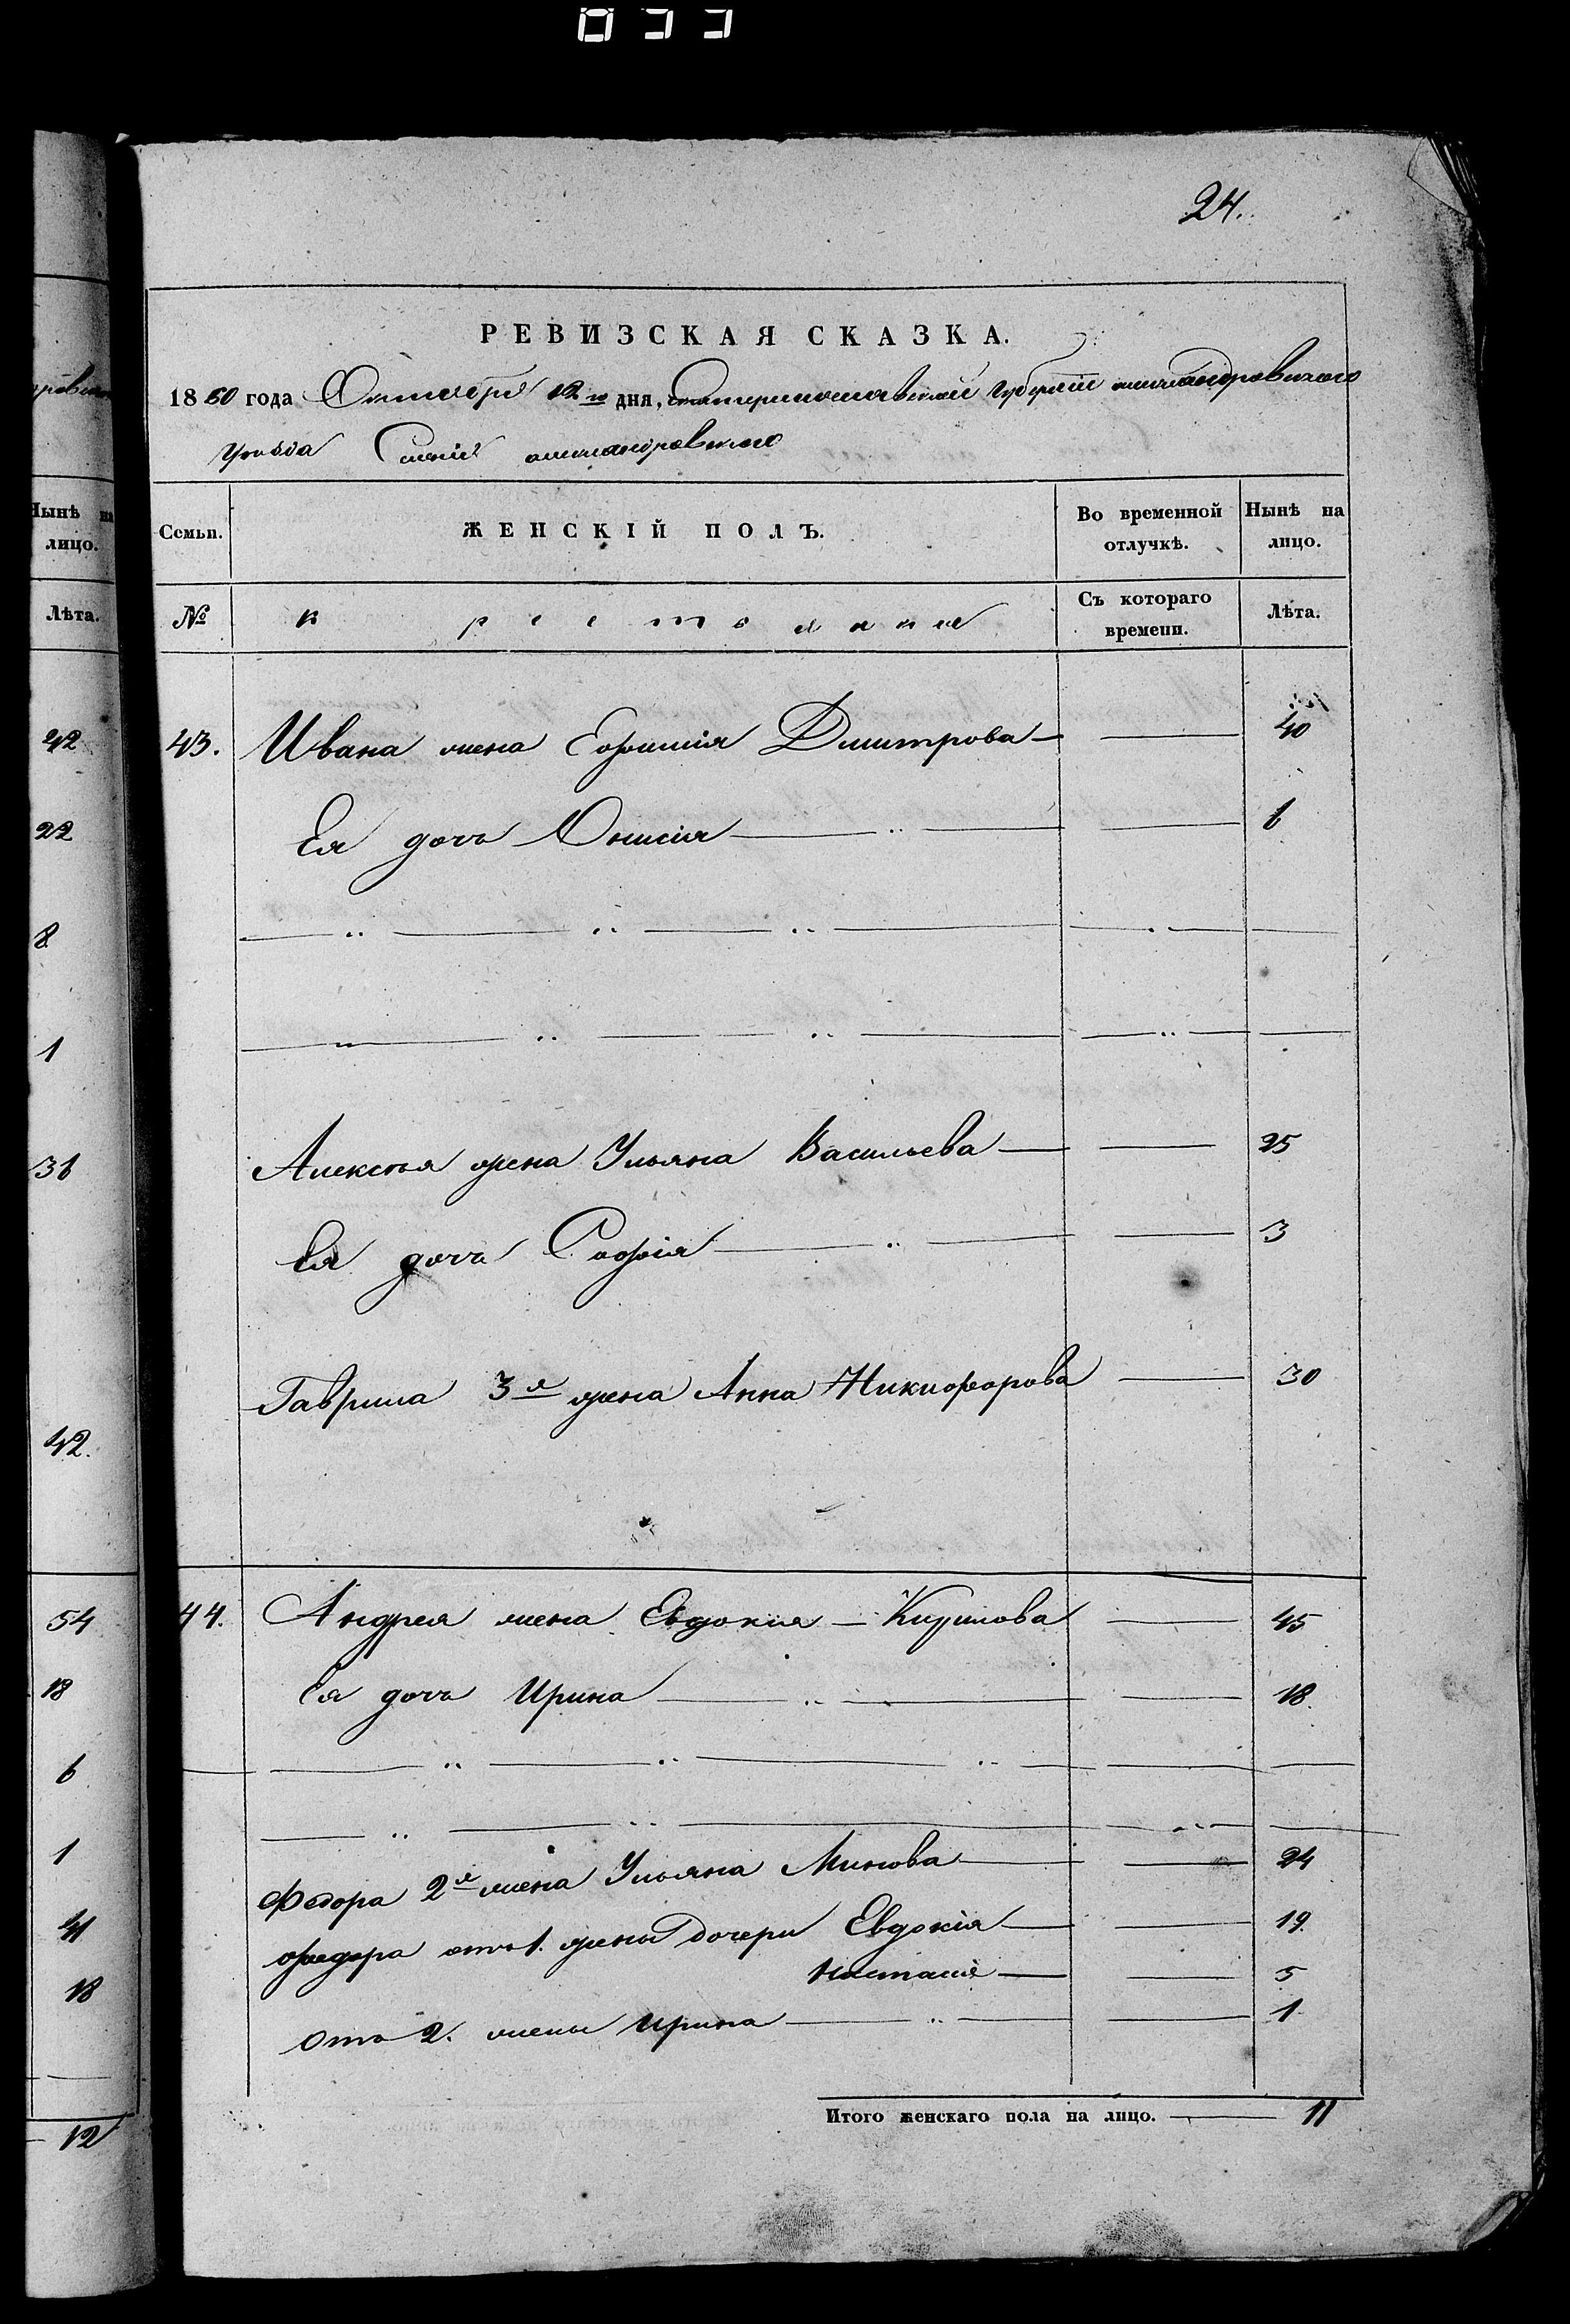 033
24.
РЕВИЗСКАЯ СКАЗКА.
1860 года Октября 12го дня, Екатеринославской Губерніи александровскаго
уѣзда Селенія александровскаго
Нынѣ на лицо.
Семьи.
ЖЕНСКІЙ ПОЛЪ.
Во временной отлучкѣ.
Нынѣ на лицо.
Лѣта.
№
Съ котораго времени.
Лѣта.
42
22
8
1
36
42.
54
18
6
1
41
18
12
43. Ивана жена Ефимія Дмитрова — — 40
Ея дочь Онисія — " — — 6
Алексѣя жена Ульяна Васильева — — 25
Ея дочь Софія — " — — 3
Гаврила 3я жена Анна Никифорова — 30
44. Андрея жена Евдокія — Кирилова — 45
Ея дочь Ирина — " — — 18.
Федора 2я жена Ульяна Минова — — 24
федора отъ 1. жены дочери Евдокія — — 19.
Настасія — — 5
отъ 2. жены Ирина — " — — 1
Итого женскаго пола на лицо. — 11